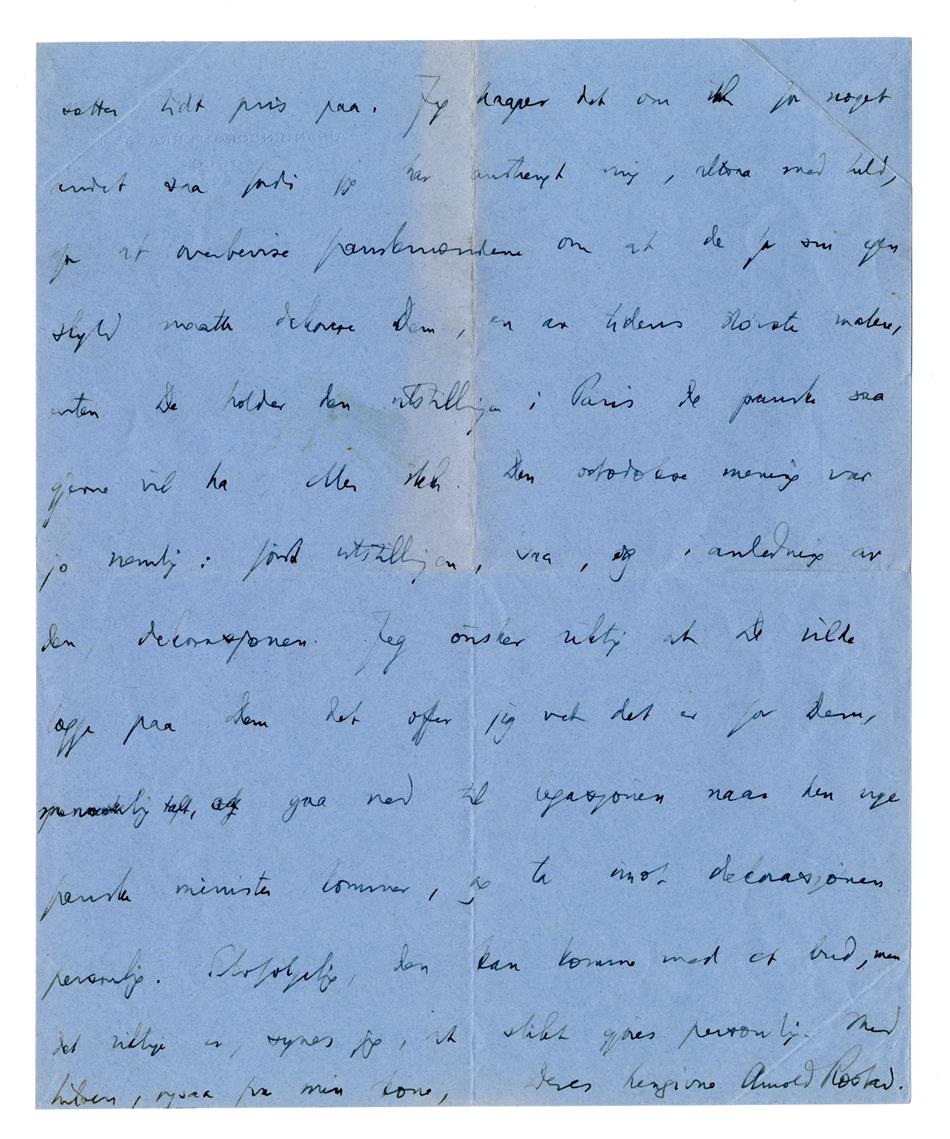 sætter lidt pris paa. Jeg haaper det om ikke for noget
andet saa fordi jeg har anstrengt mig, altsaa med held,
for at overbevise franskmændene om at de for sin egen
skyld maatte dekorere Dem, en av tidens største malere,
enten De holder den utstillingen i Paris de franske saa
gjerne vil ha eller ikke. Den ortodokse mening var
jo nemlig: først utstillingen, saa, og i anledning av
den, dekorasjonen. Jeg ønsker riktig at De vilde
lægge paa Dem det offer jeg vet det er for Dem,
at gaa ned til legasjonen naar den nye
franske minister kommer, og ta imot dekorasjonen
personlig. Selvfølgelig, den kan komme med et bud, men
det riktige er, synes jeg, at slikt gjøres personlig. Med
hilsen, ogsaa fra min kone, Deres hengivne Arnold Ræstad.